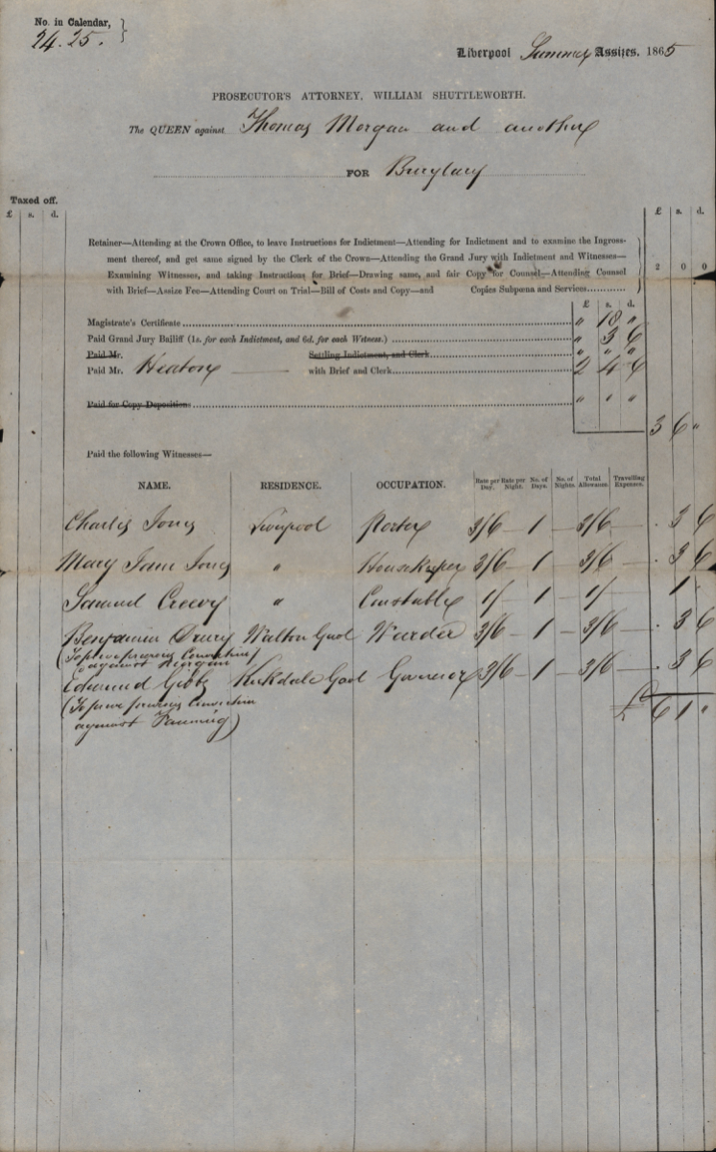 No. in Calendar,
24. 25.
Liverpool Summer Assizes. 1865
PROSECUTOR'S ATTORNEY, WILLIAM SHUTTLEWORTH.
The QUEEN against Thomas Morgan and another
FOR Burglary
Taxed off.
£ s. d. £ s. d.
Retainer—Attending at the Crown Office, to leave Instructions for Indictment—Attending for Indictment and to examine the Ingross-
ment thereof, and get same signed by the Clerk of the Crown—Attending the Grand Jury with Indictment and Witnesses—
Examining Witnesses, and taking Instructions for Brief—Drawing same, and fair Copy for Counsel—Attending Counsel 2 0 0
with Brief—Assize Fee—Attending Court on Trial—Bill of Costs and Copy—and Copies Subpœna and Services
£ s. d.
Magistrate's Certificate " 18 "
Paid Grand Jury Bailiff (1s. for each Indictment, and 6d. for each Witness.) " 3 6
Paid Mr. Settling Indictment, and Clerk " " "
Paid Mr. Heaton with Brief and Clerk 2 4 6
Paid for Copy Depositions " " "
3 6 "
Paid the following Witnesses—
NAME. RESIDENCE. OCCUPATION. Rate per Day. Rate per Night. No. of Days. No. of Nights. Total Allowance. Travelling Expenses.
Charles Jones Liverpool Porter 3/6 — 1 — 3/6 — . 3 6
Mary Jane Jones " Housekeeper 3/6 — 1 — 3/6 — . 3 6
Samuel Creevy " Constable 1/ 1 — 1/ — 1 .
Benjamin Drury Walton Gaol Warder 3/6 — 1 — 3/6 — . 3 6
(To prove previous Conviction
against Morgan)
Edmund Gibbs Kirkdale Gaol Governor 3/6 — 1 — 3/6 — . 3 6
(To prove previous Conviction
against Fanning)
£ 6 1 "